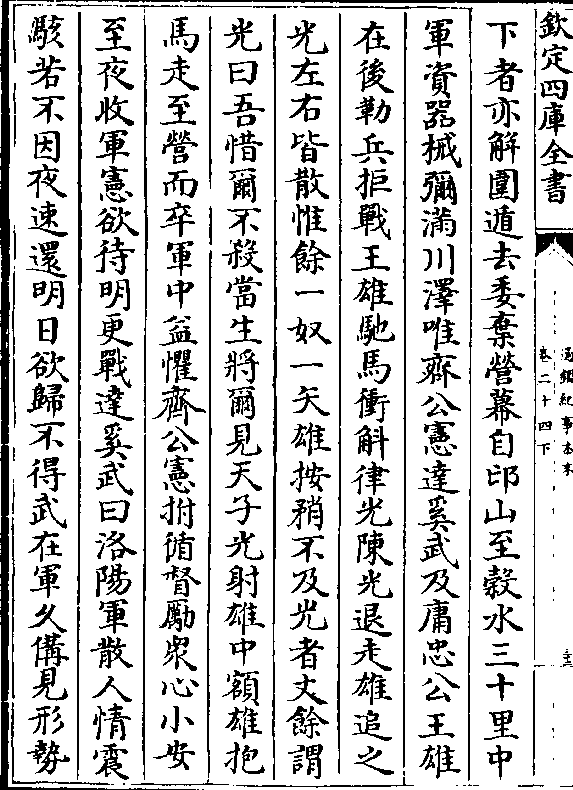 欽定四庫全書
通鑑紀事本末
卷二十四下
下者亦解圍遁去委棄營幕自邙山至穀水三十里中
軍資器械彌滿川澤唯齊公憲達奚武及庸忠公王雄
在後勒兵拒戰王雄馳馬衝斛律光陳光退走雄追之
光左右皆散惟餘一奴一矢雄按矟不及光者丈餘謂
光曰吾惜爾不殺當生將爾見天子光射雄中額雄抱
馬走至營而卒軍中益懼齊公憲拊循督勵衆心小安
至夜收軍憲欲待明更戰達奚武曰洛陽軍散人情震
駭若不因夜速還明日欲歸不得武在軍久備見形勢